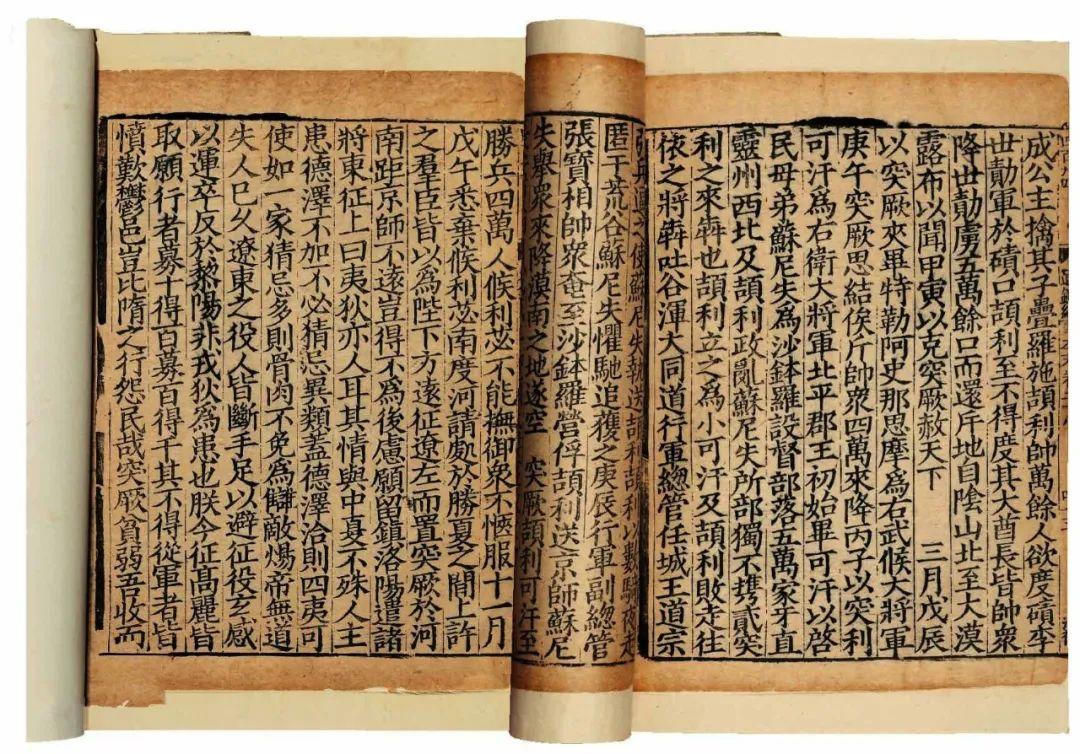 成公主擒其子疊羅施頡利帥萬餘人欲度磧李
世勣軍於磧口頡利至不得度其大酋長皆帥衆
降世勣虜五萬餘口而還斥地自隂山北至大漠
露布以聞甲寅以克突厥赦天下　三月戊辰
以突厥夾畢特勒阿史那思摩為右武候大將軍
庚午突厥思結俟斤帥衆四萬來降丙子以突利
可汗爲右衛大將軍北平郡王初始畢可汗以啓
民母弟蘇尼失爲沙鉢羅設督部落五萬家牙直
靈州西北及頡利政亂蘇尼失所部獨不攜貳突
利之來奔也頡利立之為小可汗及頡利敗走往
依之將奔吐谷渾大同道行軍緫管任城王道宗
之使蘇尼失執送頡利頡利以數騎夜走
匿于荒谷蘇尼失懼馳追獲之庚辰行軍副緫管
張寶相帥衆奄至沙鉢羅營俘頡利送京師蘇尼
失舉衆來降漠南之地遂空　突厥頡利可汗至
勝兵四萬人候利苾不能撫御衆不愜服十一月
戊午悉棄候利苾南度河請處於勝夏之間上許
之羣臣皆以為陛下方遠征遼左而置突厥於河
南距京師不遠豈得不爲後慮願留鎮洛陽遣諸
將東征上曰夷狄亦人耳其情與中夏不殊人主
患德澤不加不必猜忌異類蓋德澤洽則四夷可
使如一家猜忌多則骨肉不免爲讎敵煬帝無道
失人已久遼東之役人皆斷手足以避征役玄感
以運卒反於黎陽非戎狄為患也朕今征髙麗皆
取願行者募十得百募百得千其不得從軍者皆
憤歎鬱邑豈比隋之行怨民哉突厥貧弱吾收而